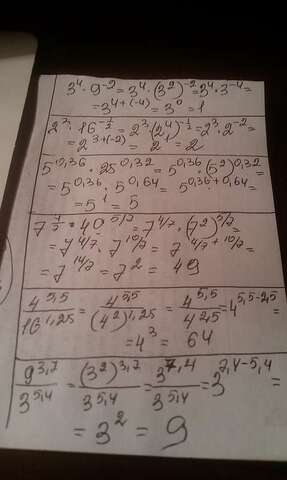 3⁴ · 9⁻² = 3⁴ · (3²)⁻² = 3⁴ · 3⁻⁴ =
= 3⁴⁺⁽⁻⁴⁾ = 3⁰ = 1
2³ · 16^(-1/2) = 2³ · (2⁴)^(-1/2) = 2³ · 2⁻² =
= 2³⁺⁽⁻²⁾ = 2¹ = 2
5^0,36 · 25^0,32 = 5^0,36 · (5²)^0,32 =
= 5^0,36 · 5^0,64 = 5^(0,36+0,64) =
= 5¹ = 5
7^(4/7) · 49^(5/7) = 7^(4/7) · (7²)^(5/7) =
= 7^(4/7) · 7^(10/7) = 7^(4/7+10/7) =
= 7^(14/7) = 7² = 49
4^5,5 / 16^1,25 = 4^5,5 / (4²)^1,25 = 4^5,5 / 4^2,5 = 4^(5,5-2,5) =
= 4³ = 64
9^3,7 / 3^5,4 = (3²)^3,7 / 3^5,4 = 3^7,4 / 3^5,4 = 3^(7,4-5,4) =
= 3² = 9